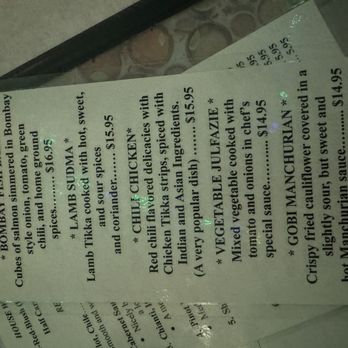 * BOMBAY
Cubes of salmon simmered in Bombay
style onion, tomato, green
chili, and home ground
spices......... $16.95
* LAMB SUDMA *
Lamb Tikka cooked with hot, sweet,
and sour spices
and coriander........ $15.95
* CHILI CHICKEN*
Red chili flavored delicacies with
Chicken Tikka strips, spiced with
Indian and Asian Ingredients.
(A very popular dish) ..... $15.95
* VEGETABLE JULFAZIE *
Mixed vegetable cooked with
tomato and onions in chef's
special sauce........ $14.95
* GOBI MANCHURIAN *
Crispy fried cauliflower covered in a
slightly sour, but sweet and
hot Manchurian sauce..... $14.95
5.95
5.95
5.95
HOUSE